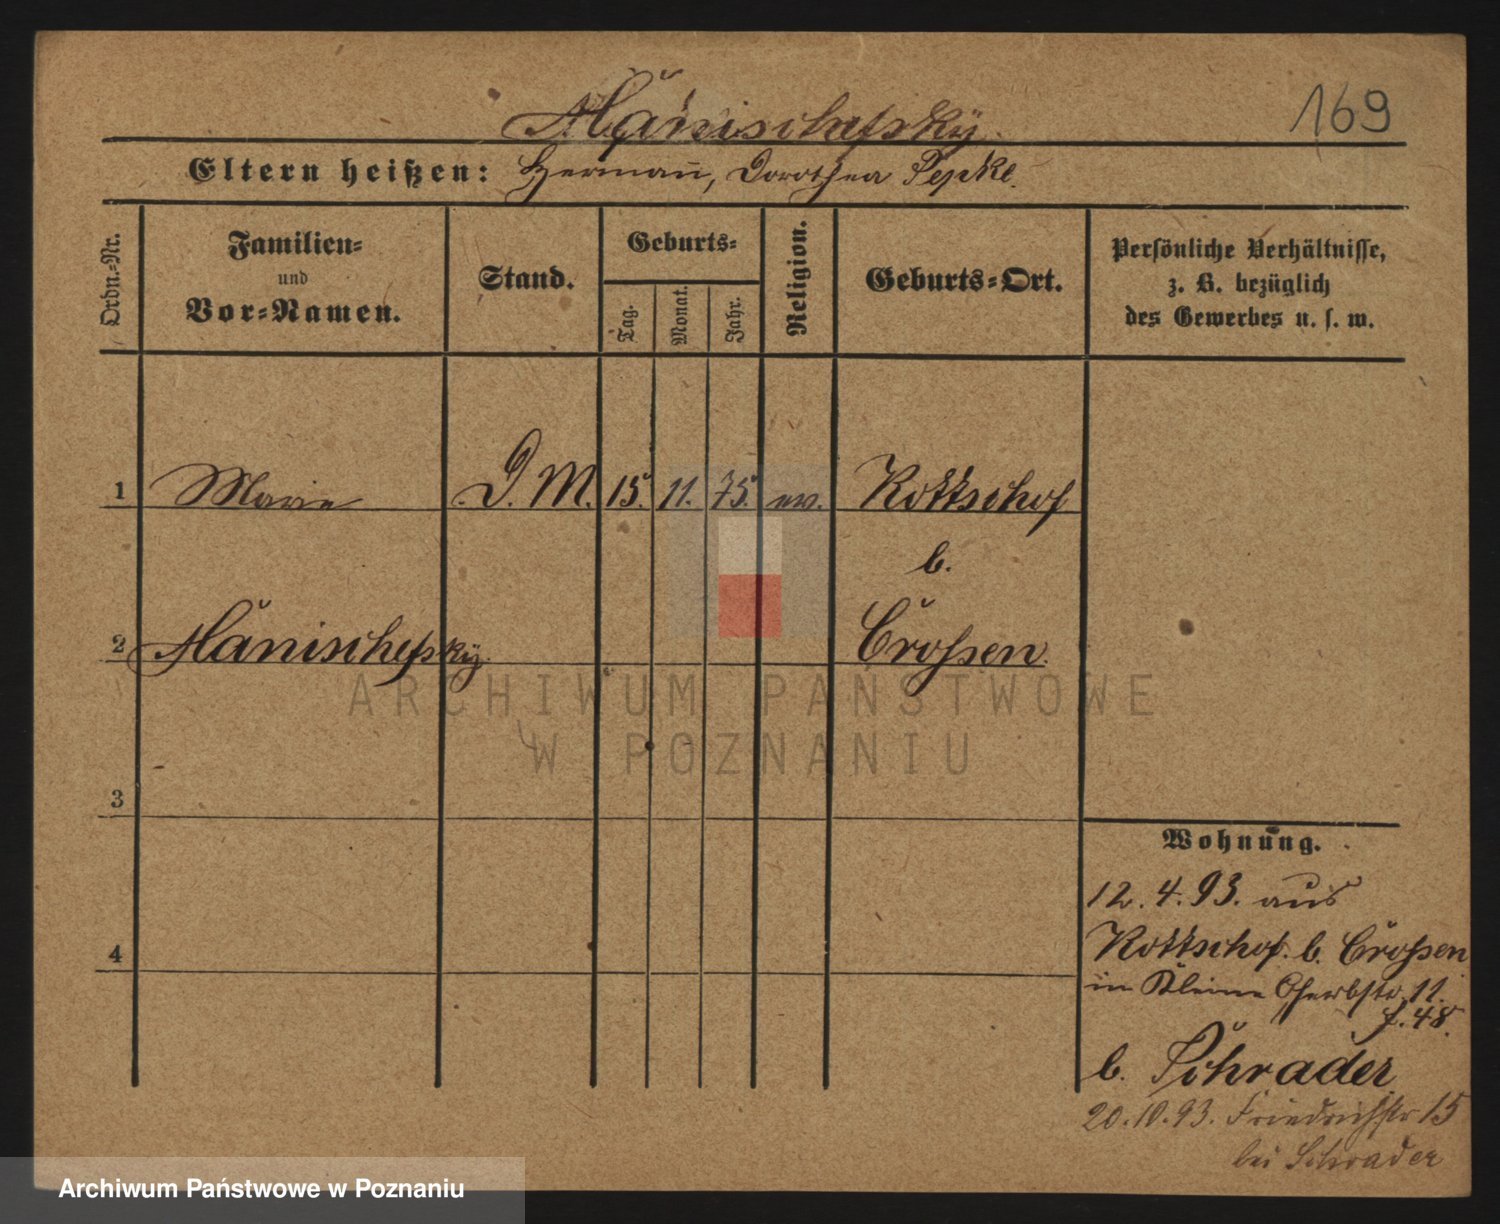 Hänischefsky
169
Eltern heißen: Hermann, Dorothea Pepke.
Ordn.=Nr.
Familien=
und
Vor=Namen.
Stand.
Geburts=
Tag.
Monat.
Jahr.
Religion.
Geburts=Ort.
Persönliche Verhältnisse,
z. B. bezüglich
des Gewerbes u. s. w.
1 Marie D. M. 15. 11. 75. ev. Kottschof
b.
2 Hänischefsky. Crossen.
3
4
Wohnung.
12. 4. 93. aus
Kottschof. b. Crossen
in Kleine Gerbstr. 11.
f. 48.
b. Schrader
20. 10. 93. Friedrichstr 15
bei Schrader
ARCHIWUM PAŃSTWOWE
W POZNANIU
Archiwum Państwowe w Poznaniu